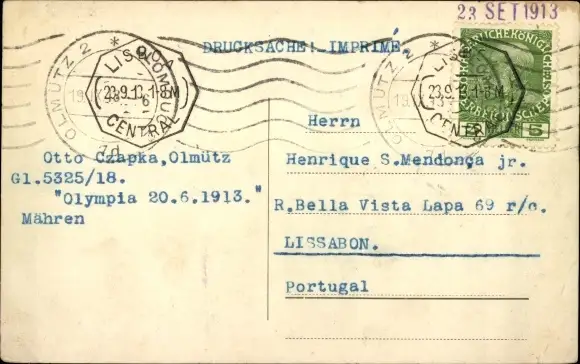 23 SET 1913
DRUCKSACHE! IMPRIMÉ.
OLMÜTZ 2 *
LISBOA
23.9.13.1-8M
CENTRAL
OLMÜTZ 2
23.9.13.1-8M
CENTRAL
5
Herrn
Otto Czapka,Olmütz
Gl.5325/18.
"Olympia 20.6.1913."
Mähren
Henrique S.Mendonça jr.
R.Bella Vista Lapa 69 r/c.
LISSABON.
Portugal